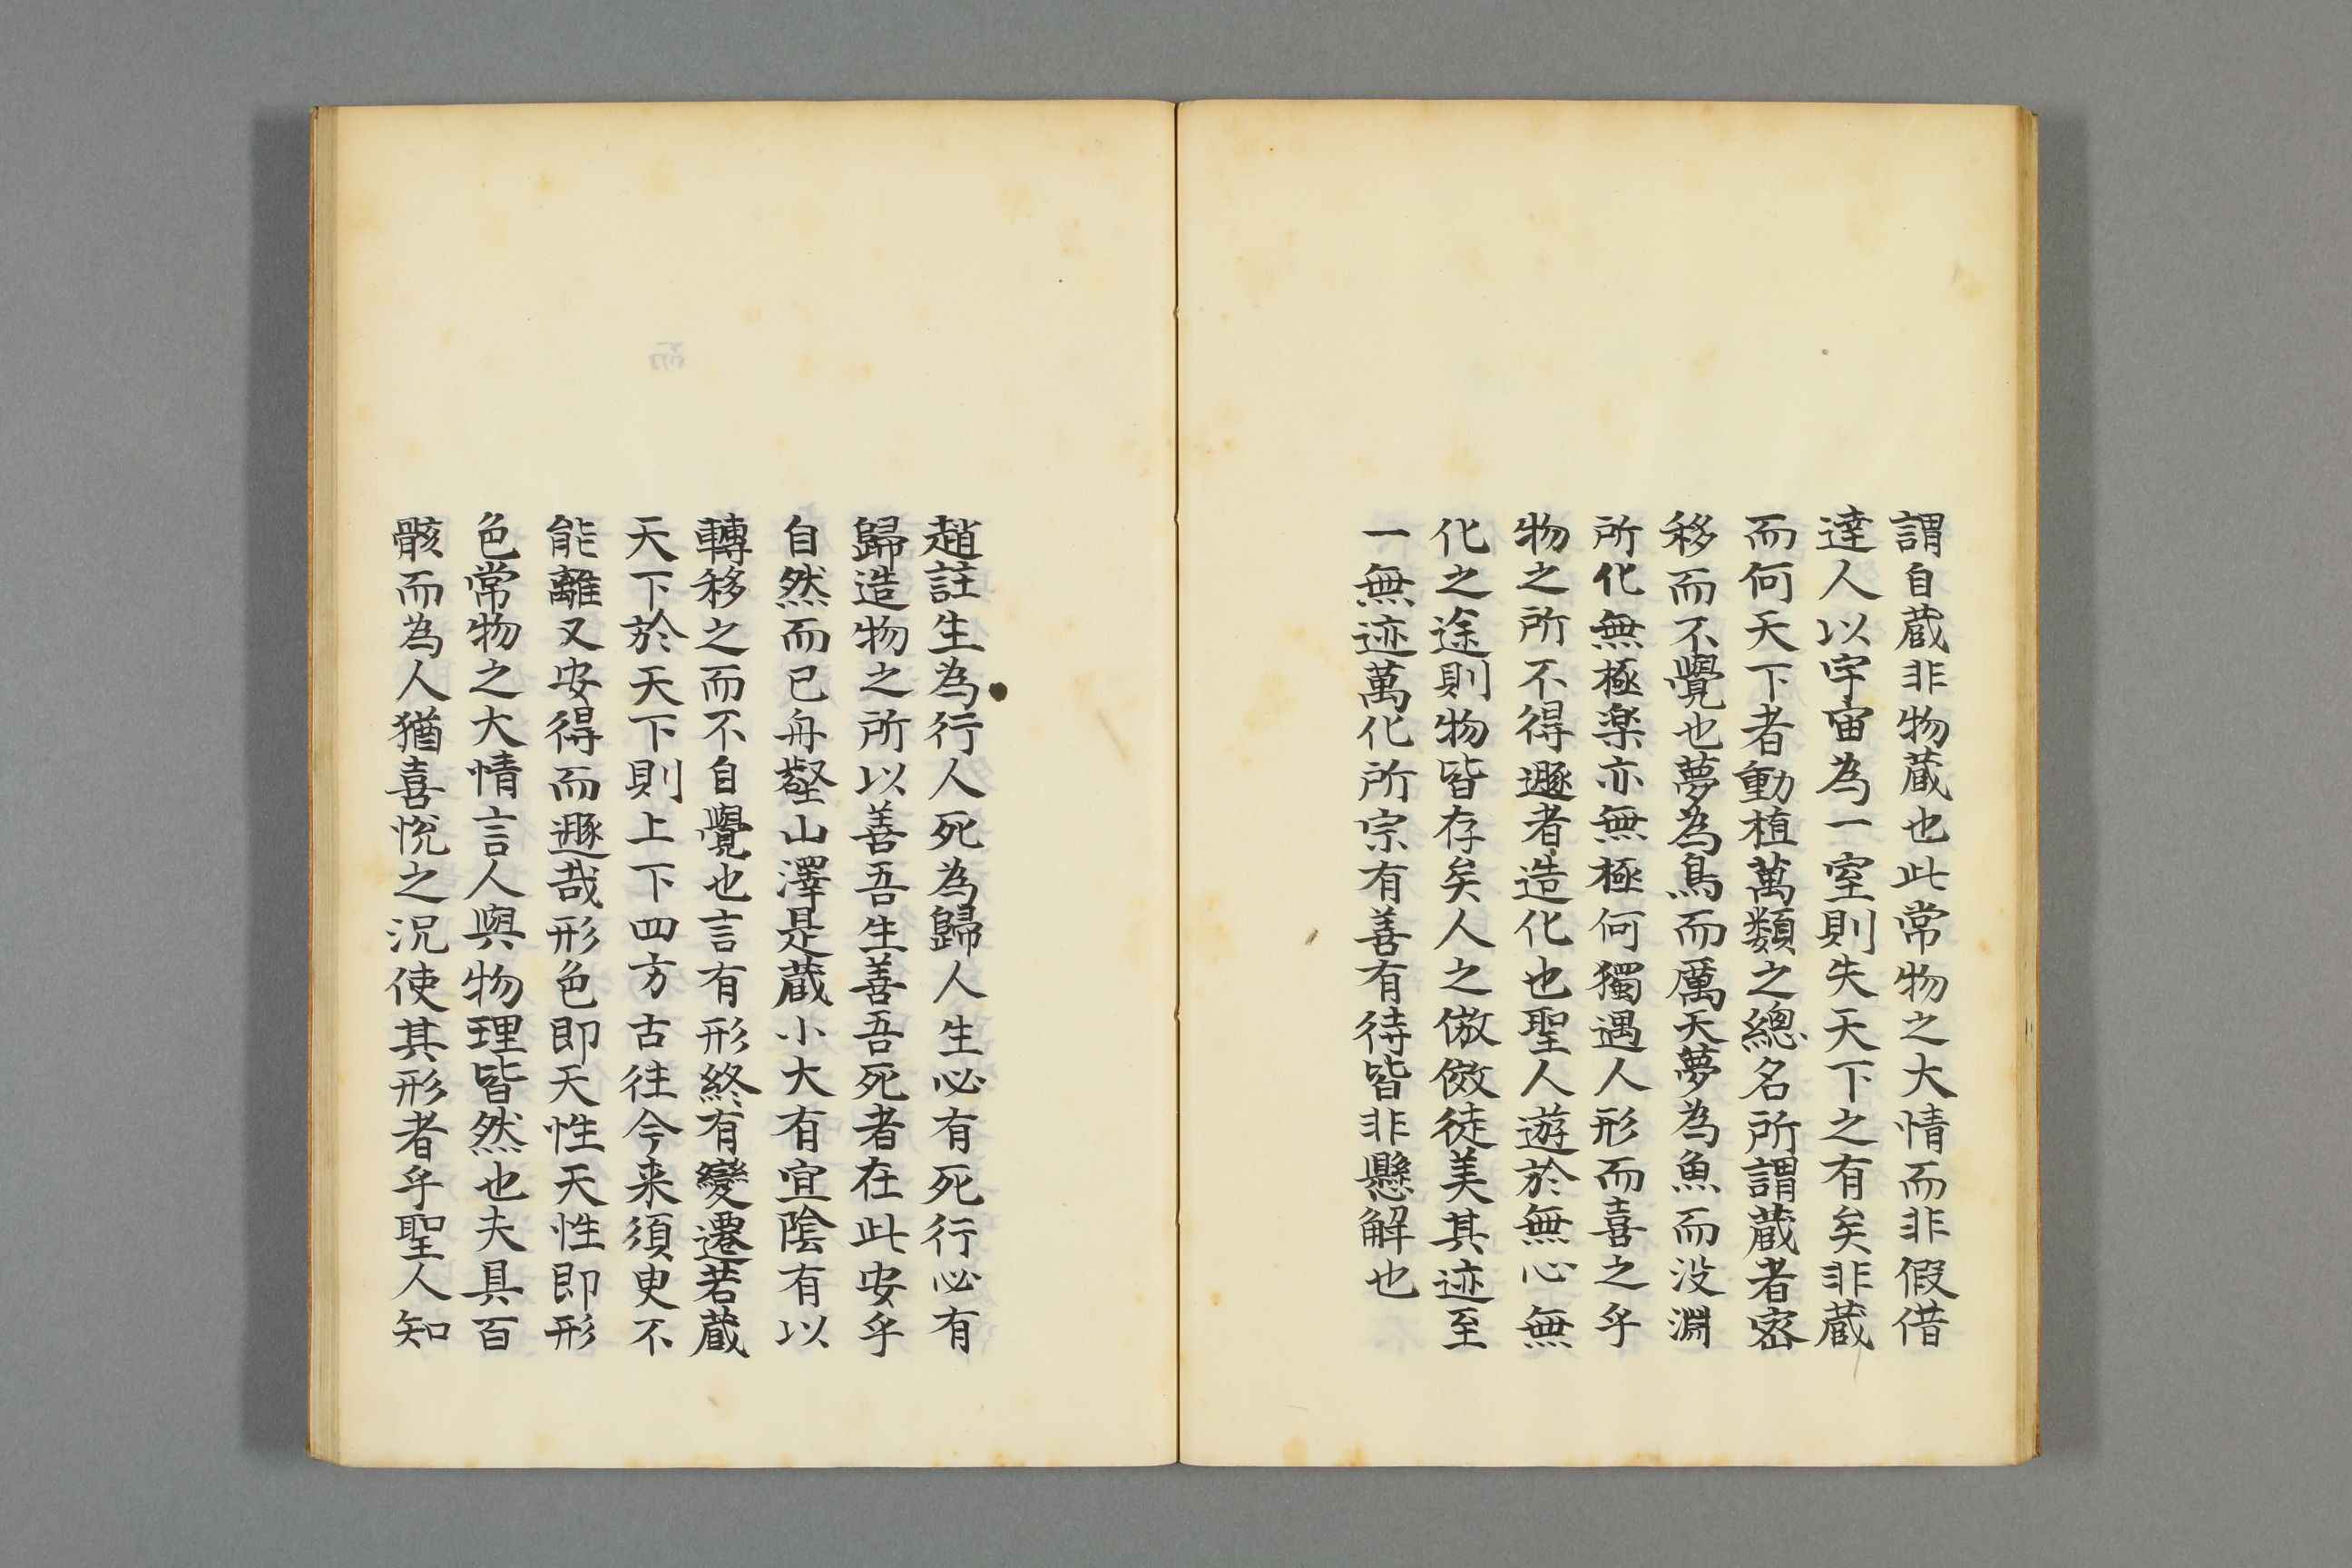 謂自蔵非物蔵也此常物之大情而非假借
達人以宇宙為一室則失天下之有矣非蔵
而何天下者動植萬類之總名所謂蔵者密
移而不覺也夢為鳥而厲天夢為魚而没淵
所化無極楽亦無極何獨遇人形而喜之乎
物之所不得遯者造化也聖人遊於無心無
化之途則物皆存矣人之倣傚徒美其迹至
一無迹萬化所宗有善有待皆非懸解也
趙註生為行人死為歸人生必有死行必有
歸造物之所以善吾生善吾死者在此安乎
自然而已舟壑山澤是蔵小大有宜陰有以
轉移之而不自覺也言有形終有變遷若蔵
天下於天下則上下四方古往今来須臾不
能離又安得而遯哉形色即天性天性即形
色常物之大情言人與物理皆然也夫具百
骸而為人猶喜悅之况使其形者乎聖人知